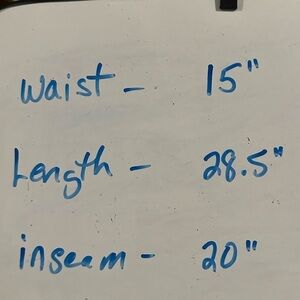 waist - 15"
Length - 28.5"
inseam - 20"